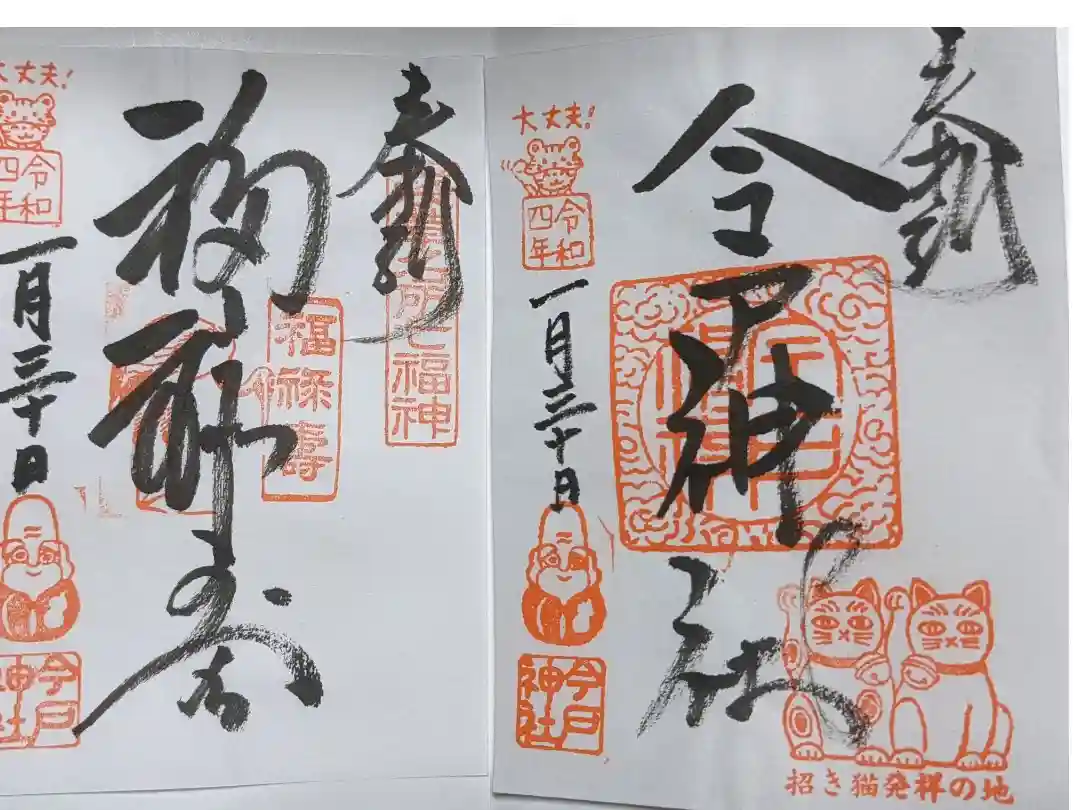 奉拝
今戸神社
招き猫発祥の地
大丈夫!
令和
四年
一月三十日
今戸
神社
奉拝
浅草名所七福神
福禄寿
福禄壽
大丈夫!
令和
四年
一月三十日
今戸
神社